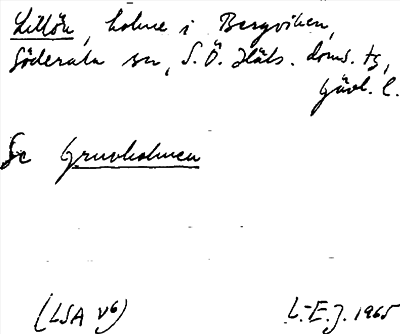 Lillön, holme i Bergviken,
Söderala sn, S. Ö. Häls. doms. tg,
Gävl. l.
Se Gruvholmen
(LSA V6) L.-E. J. 1965